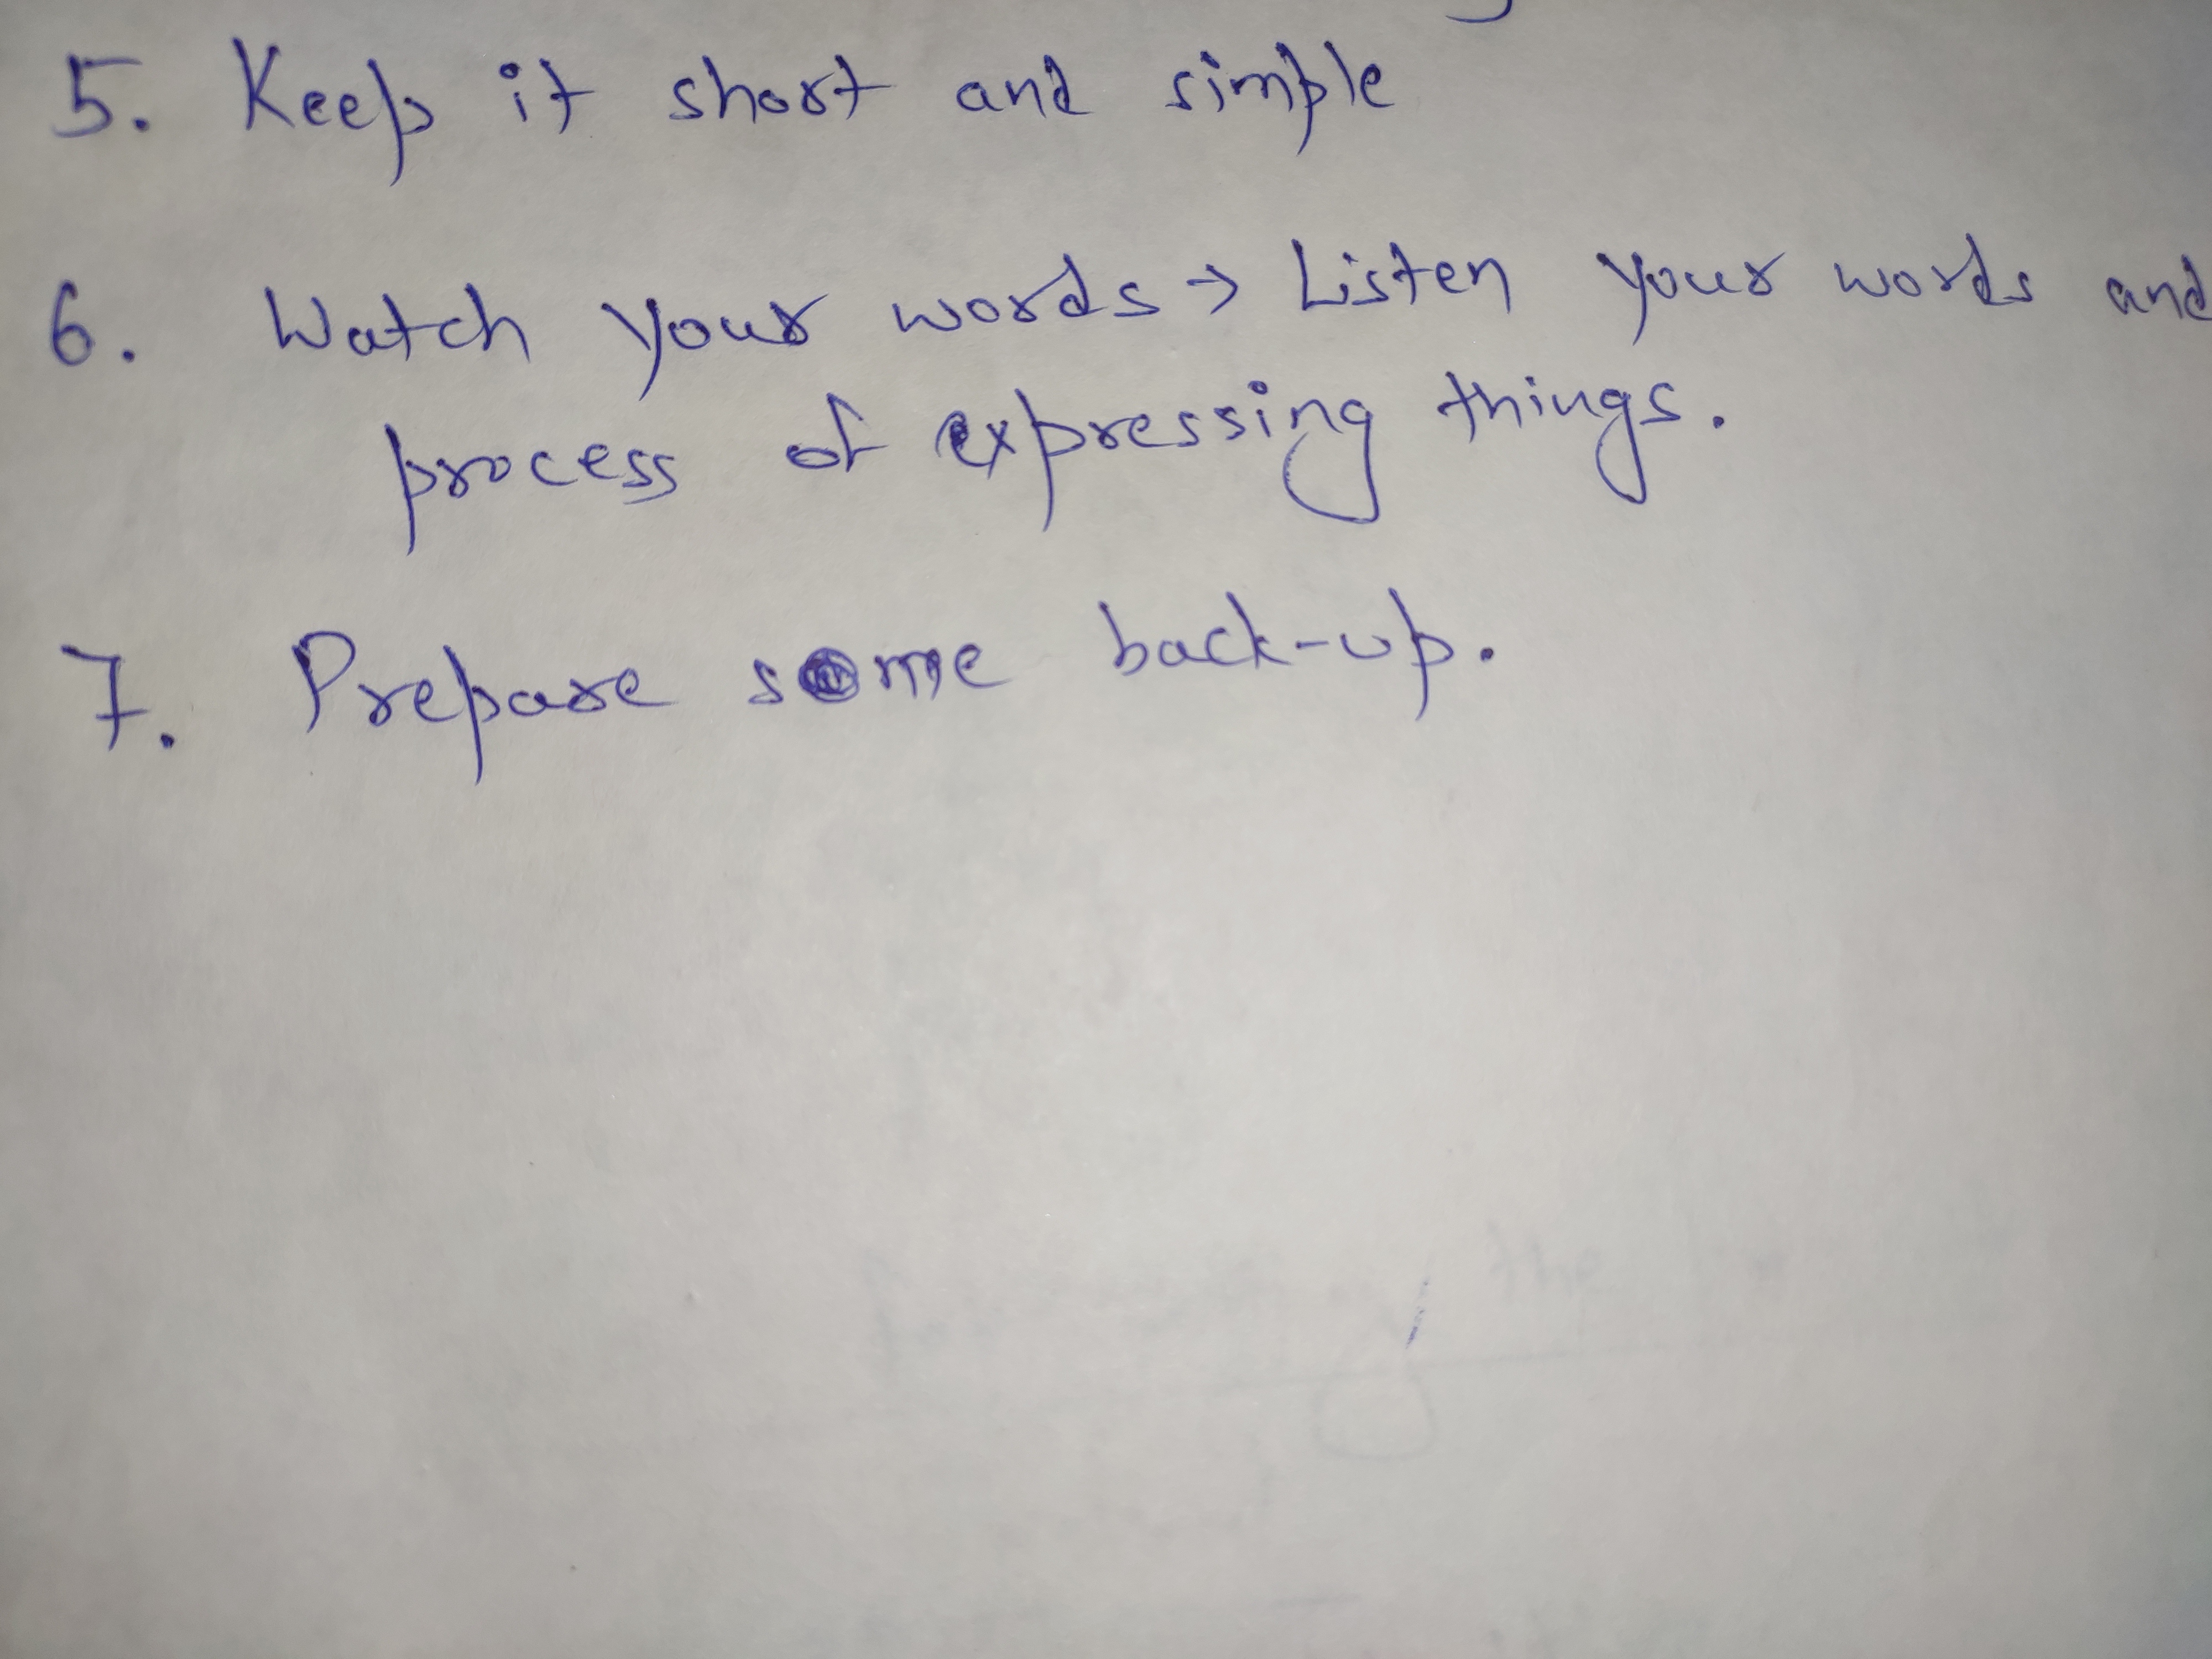 5. Keep it short and simple
6. Watch your words → Listen your words and
process of expressing things.
7. Prepare some back-up.
the